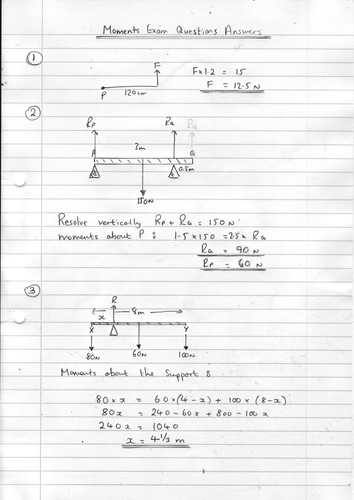 Moments Exam Questions Answers
①
F
P
120cm
F×1.2 = 15
F = 12.5N
②
RP
RQ
RQ
P
3m
Q
0.5m
150N
Resolve vertically RP + RQ = 150N.
moments about P : 1.5×150 = 2.5× RQ
RQ = 90N
RP = 60N
③
R
x
8m
X
Y
80N
60N
100N
Moments about the Support :
80×x = 60×(4-x) + 100×(8-x)
80x = 240-60x + 800-100x
240x = 1040
x = 4⅓ m